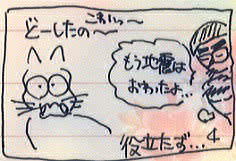 どーしたの〜
こわいっ〜
もう地震は
おわったよ…
役立たず…
4